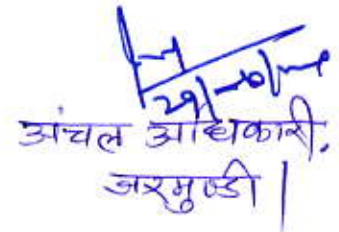 अंचल अधिकारी,
जरमुण्डी |